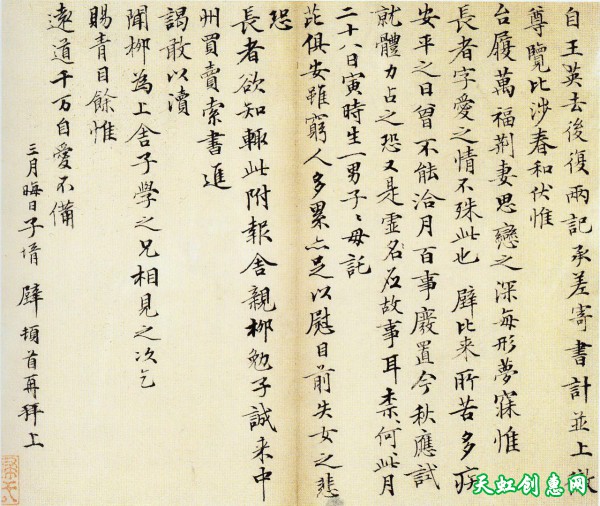 自王英去後復兩記承差寄書計並上徹
尊覽比涉春和伏惟
台履萬福荆妻思戀之深每形夢寐惟
長者字愛之情不殊此也 辟比来所苦多疾
安平之日曾不能洽月百事廢置今秋應試
就體力占之恐又是虚名反故事耳柰何此月
二十八日寅時生一男子〻母託
芘俱安雖窮人多累亦足以慰目前失女之悲
恐
長者欲知輒此附報舍親柳勉子誠来中
州買賣索書進
謁敢以瀆
聞柳為上舍子學之兄相見之次乞
賜青目餘惟
遠道千万自愛不備
三月晦日子壻 辟頓首再拜上
天虹创惠网